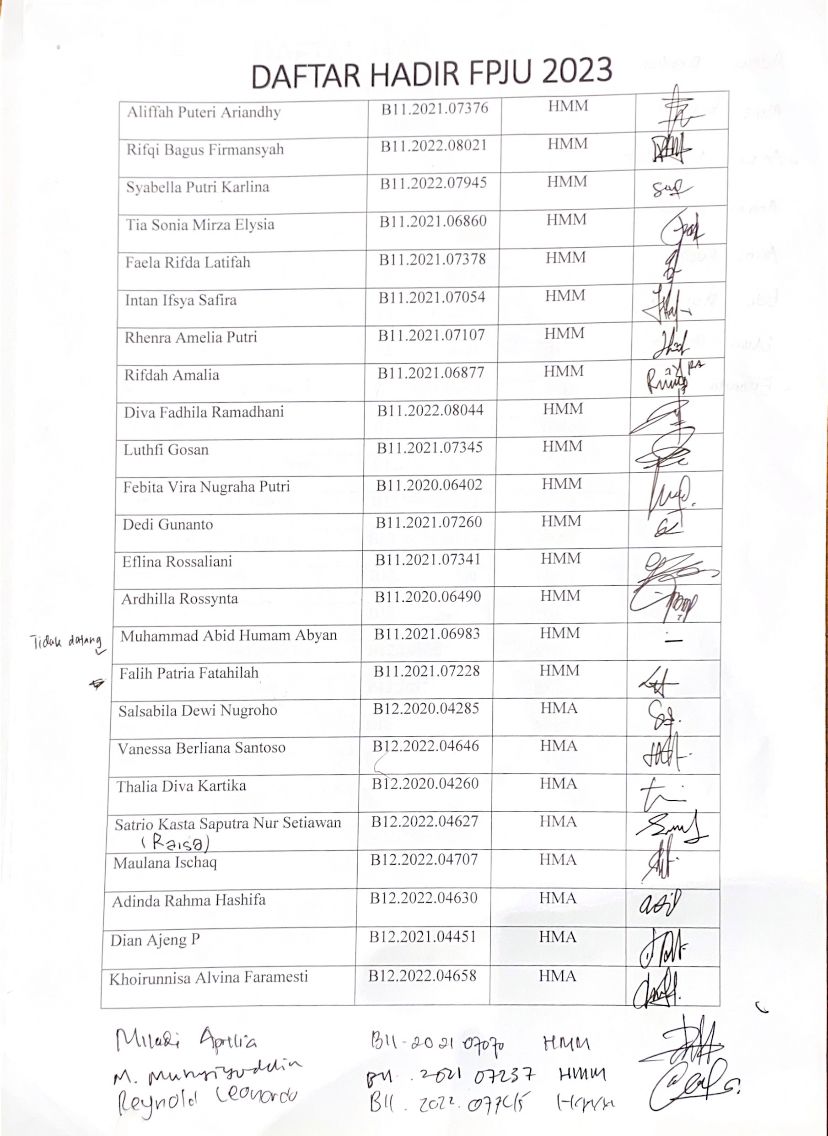 DAFTAR HADIR FPJU 2023
Aliffah Puteri Ariandhy B11.2021.07376 HMM
Rifqi Bagus Firmansyah B11.2022.08021 HMM
Syabella Putri Karlina B11.2022.07945 HMM
Tia Sonia Mirza Elysia B11.2021.06860 HMM
Faela Rifda Latifah B11.2021.07378 HMM
Intan Ifsya Safira B11.2021.07054 HMM
Rhenra Amelia Putri B11.2021.07107 HMM
Rifdah Amalia B11.2021.06877 HMM
Diva Fadhila Ramadhani B11.2022.08044 HMM
Luthfi Gosan B11.2021.07345 HMM
Febita Vira Nugraha Putri B11.2020.06402 HMM
Dedi Gunanto B11.2021.07260 HMM
Eflina Rossaliani B11.2021.07341 HMM
Ardhilla Rossynta B11.2020.06490 HMM
Tidak datang Muhammad Abid Humam Abyan B11.2021.06983 HMM –
Falih Patria Fatahilah B11.2021.07228 HMM
Salsabila Dewi Nugroho B12.2020.04285 HMA
Vanessa Berliana Santoso B12.2022.04646 HMA
Thalia Diva Kartika B12.2020.04260 HMA
Satrio Kasta Saputra Nur Setiawan B12.2022.04627 HMA
(Raisa)
Maulana Ischaq B12.2022.04707 HMA
Adinda Rahma Hashifa B12.2022.04630 HMA
Dian Ajeng P B12.2021.04451 HMA
Khoirunnisa Alvina Faramesti B12.2022.04658 HMA
Miladi Aprilia B11-2021 07070 HMM
M. B11.2021 07237 HMM
Reynold Leonardo B11.2022. HMM